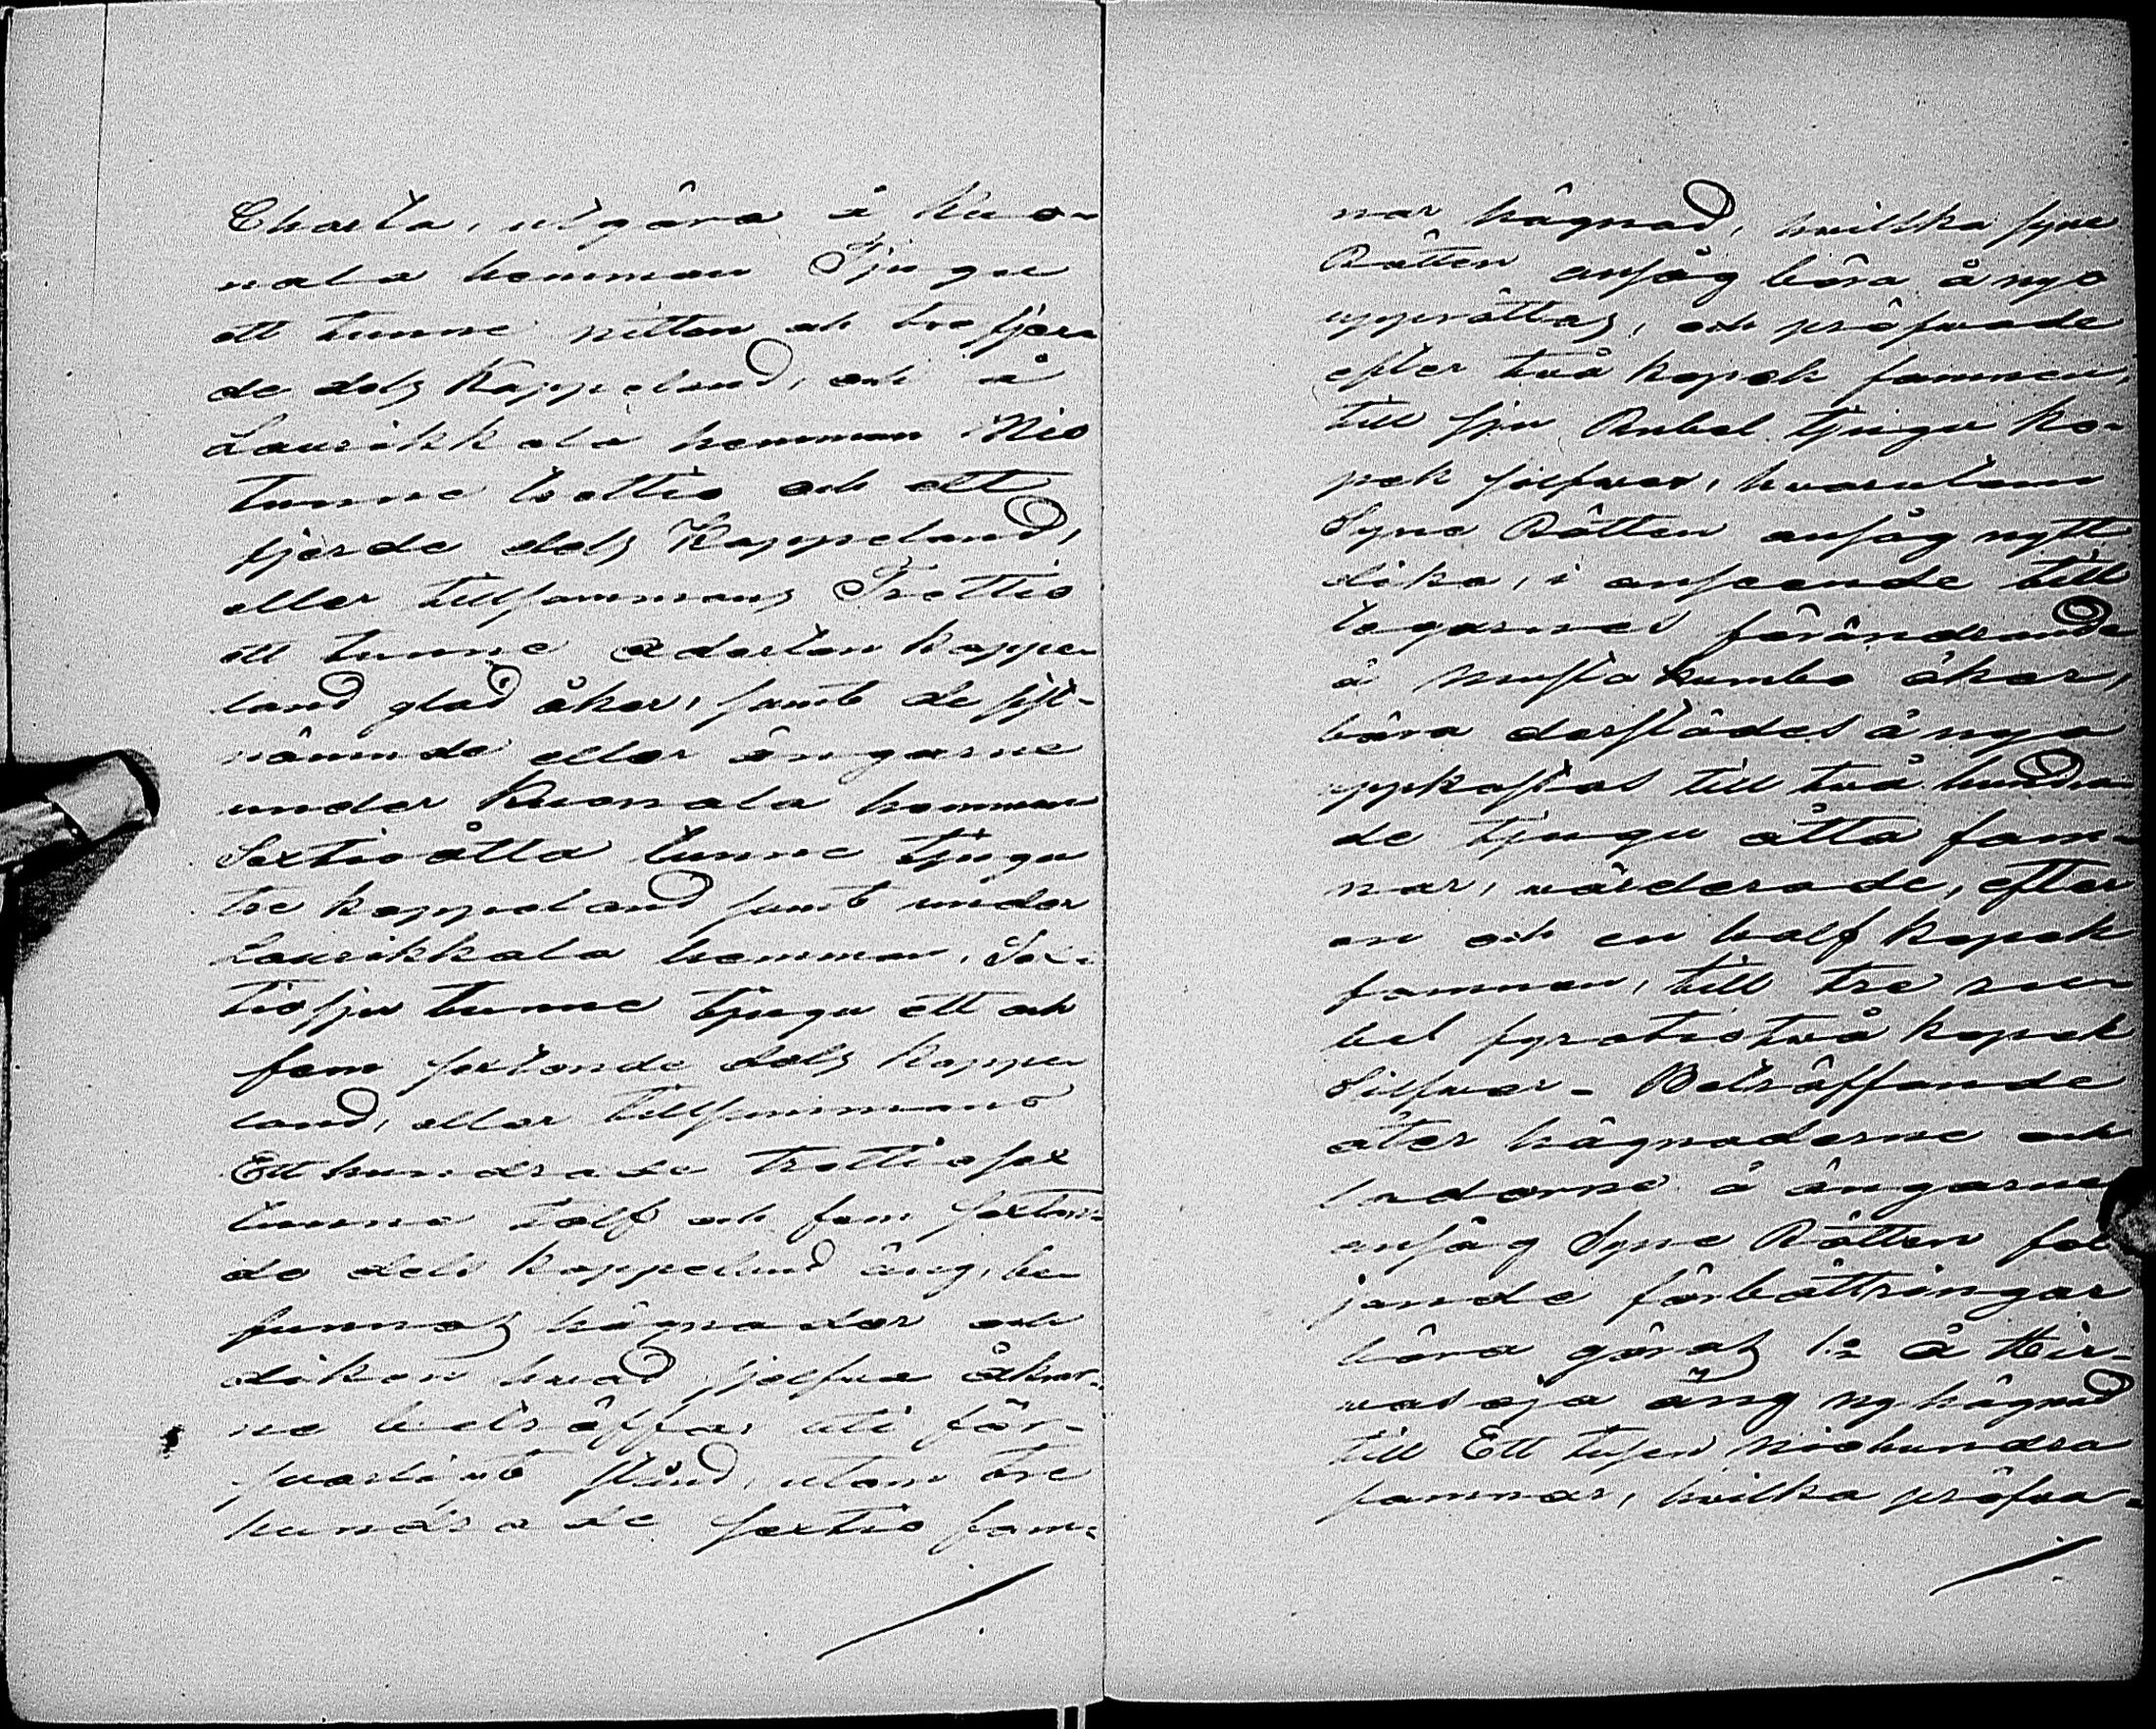 Charta, utgöra å Kuo-
nala hemman Tjugu
ett tunne nitton och tre fjer-
de dels Kappeland, och å
Laurikkala hemman Nio
tunne trettio och ett
fjerde dels Kappeland,
eller tillsammans Trettio
ett tunne aderton kappe
land glad åker, samt de sist-
nämnde eller ängarne
under Kuonala hemman
Sextioåtta tunne tjugu
tre kappeland samt under
Laurikkala hemman, Sex-
tiosju tunne tjugu ett och
fem sextonde dels kappe
land, eller tillsammans
Ett hundrade trettiosex
tunne tolf och fem sexton-
de dels kappeland äng, be-
funnos hägnader och
diken hvad sjelfva åkrar-
ne beträffar uti för-
svarligt stånd, utom tre
hundrade sextio fam-
nar hägnad, hvilka Syne
Rätten ansåg böra å nyo
upprättas, och pröfvade
efter två kopek famnen,
till sju Rubel tjugu ko-
pek silfver, hvarutom
Syne Rätten ansåg nytt
dika, i anseende till
tegarnes förändrande
å Musta kumbo åker,
böra derstädes å nyo
uppkastas till två hundra-
de tjugu åtta fam-
nar, värderade, efter
en och en half kopek
famnen, till tre ru-
bel fyratiotvå kopek
Silfver. Beträffande
åter hägnaderne och
ladorne å ängarne
ansåg Syne Rätten föl
jande förbättringar
böra göras 1:o å Hir-
vasoja äng ny hägnad
till Ett tusen Niohundra
famnar, hvilka pröfva-